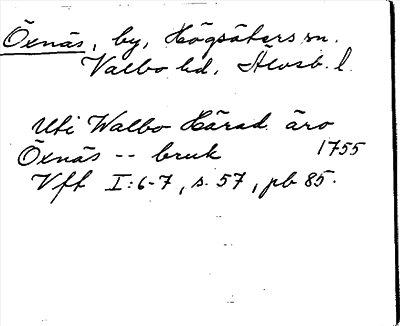 Öxnäs, by, Högsäters sn.
Valbo hd, Älvsb. l.
Uti Walbo Härad äro
Öxnäs -- bruk 1755
Vff I:6-7, s. 57, pb 85.